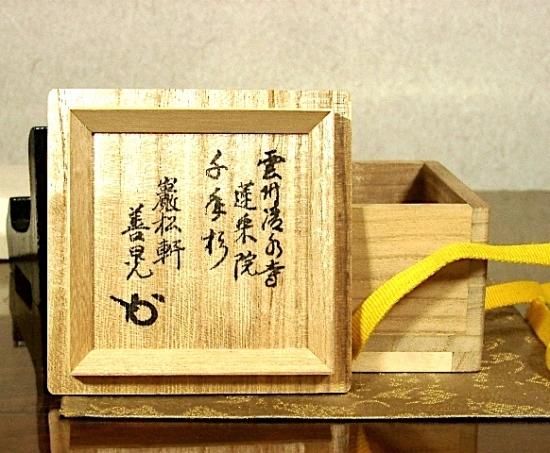 雲州清水寺
蓮乗院
千年杉
巌松軒
善晃